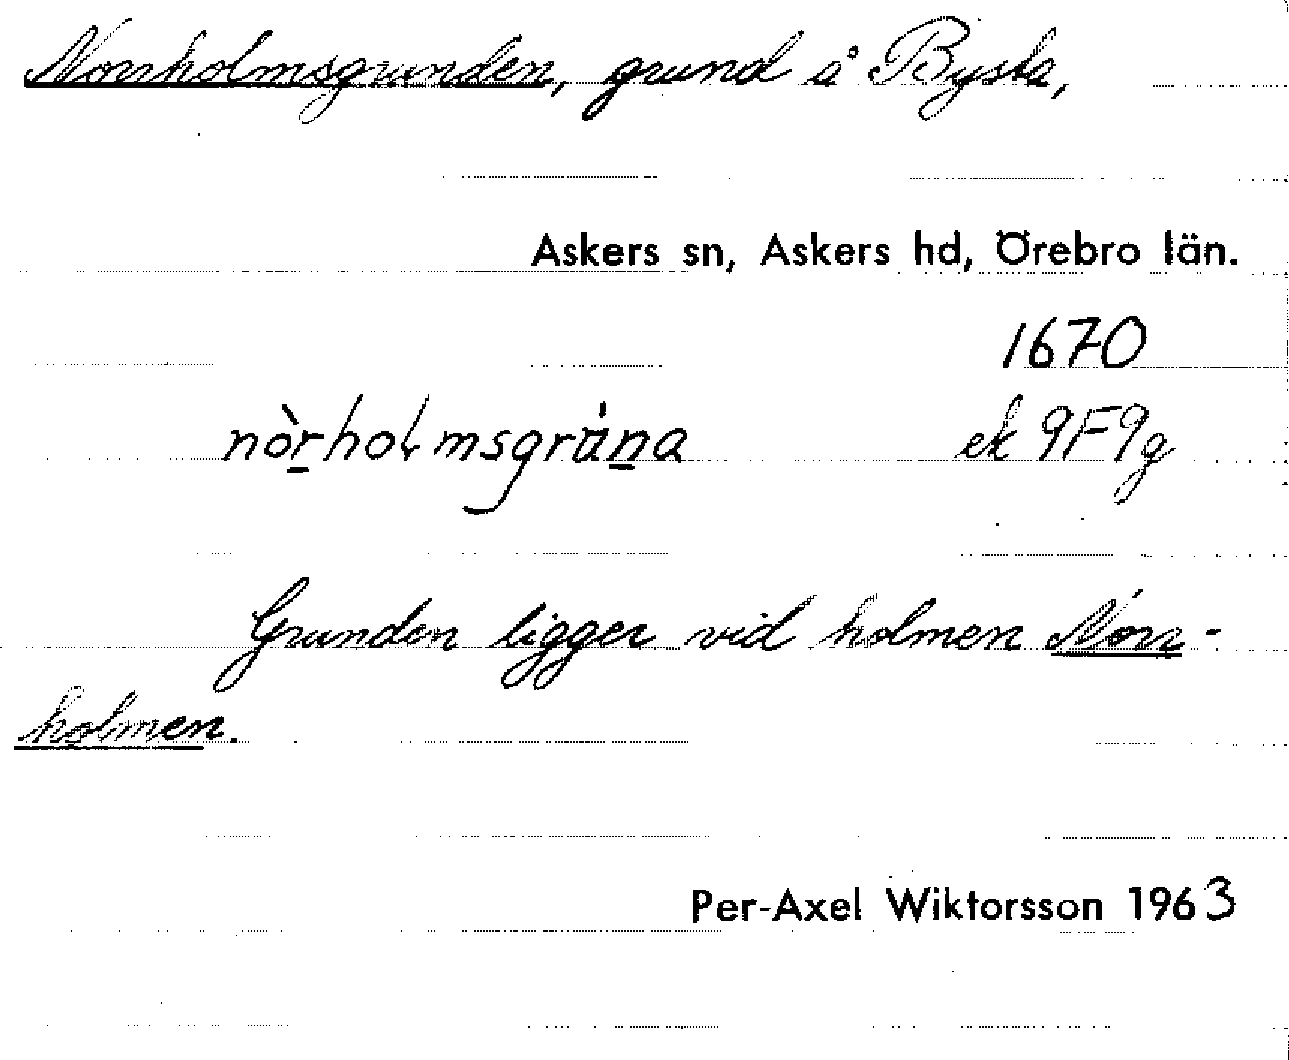 Norrholmsgrunden, grund å Bysta,
Askers sn, Askers hd, Örebro län.
1670
nòrholmsgrúna ek 9F9g
Grunden ligger vid holmen Norr-
holmen.
Per-Axel Wiktorsson 1963